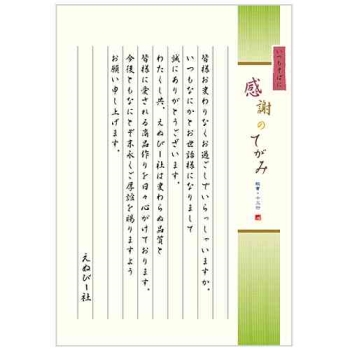 いつもそばに
感謝のてがみ
皆様お変わりなくお過ごしでいらっしゃいますか。
いつもなにかとお世話様になりまして
誠にありがとうございます。
わたくし共、えぬびー社は変わらぬ品質と
皆様に愛される商品作りを日々心がけております。
今後ともなにとぞ末永くご厚誼を賜りますよう
お願い申し上げます。
えぬびー社